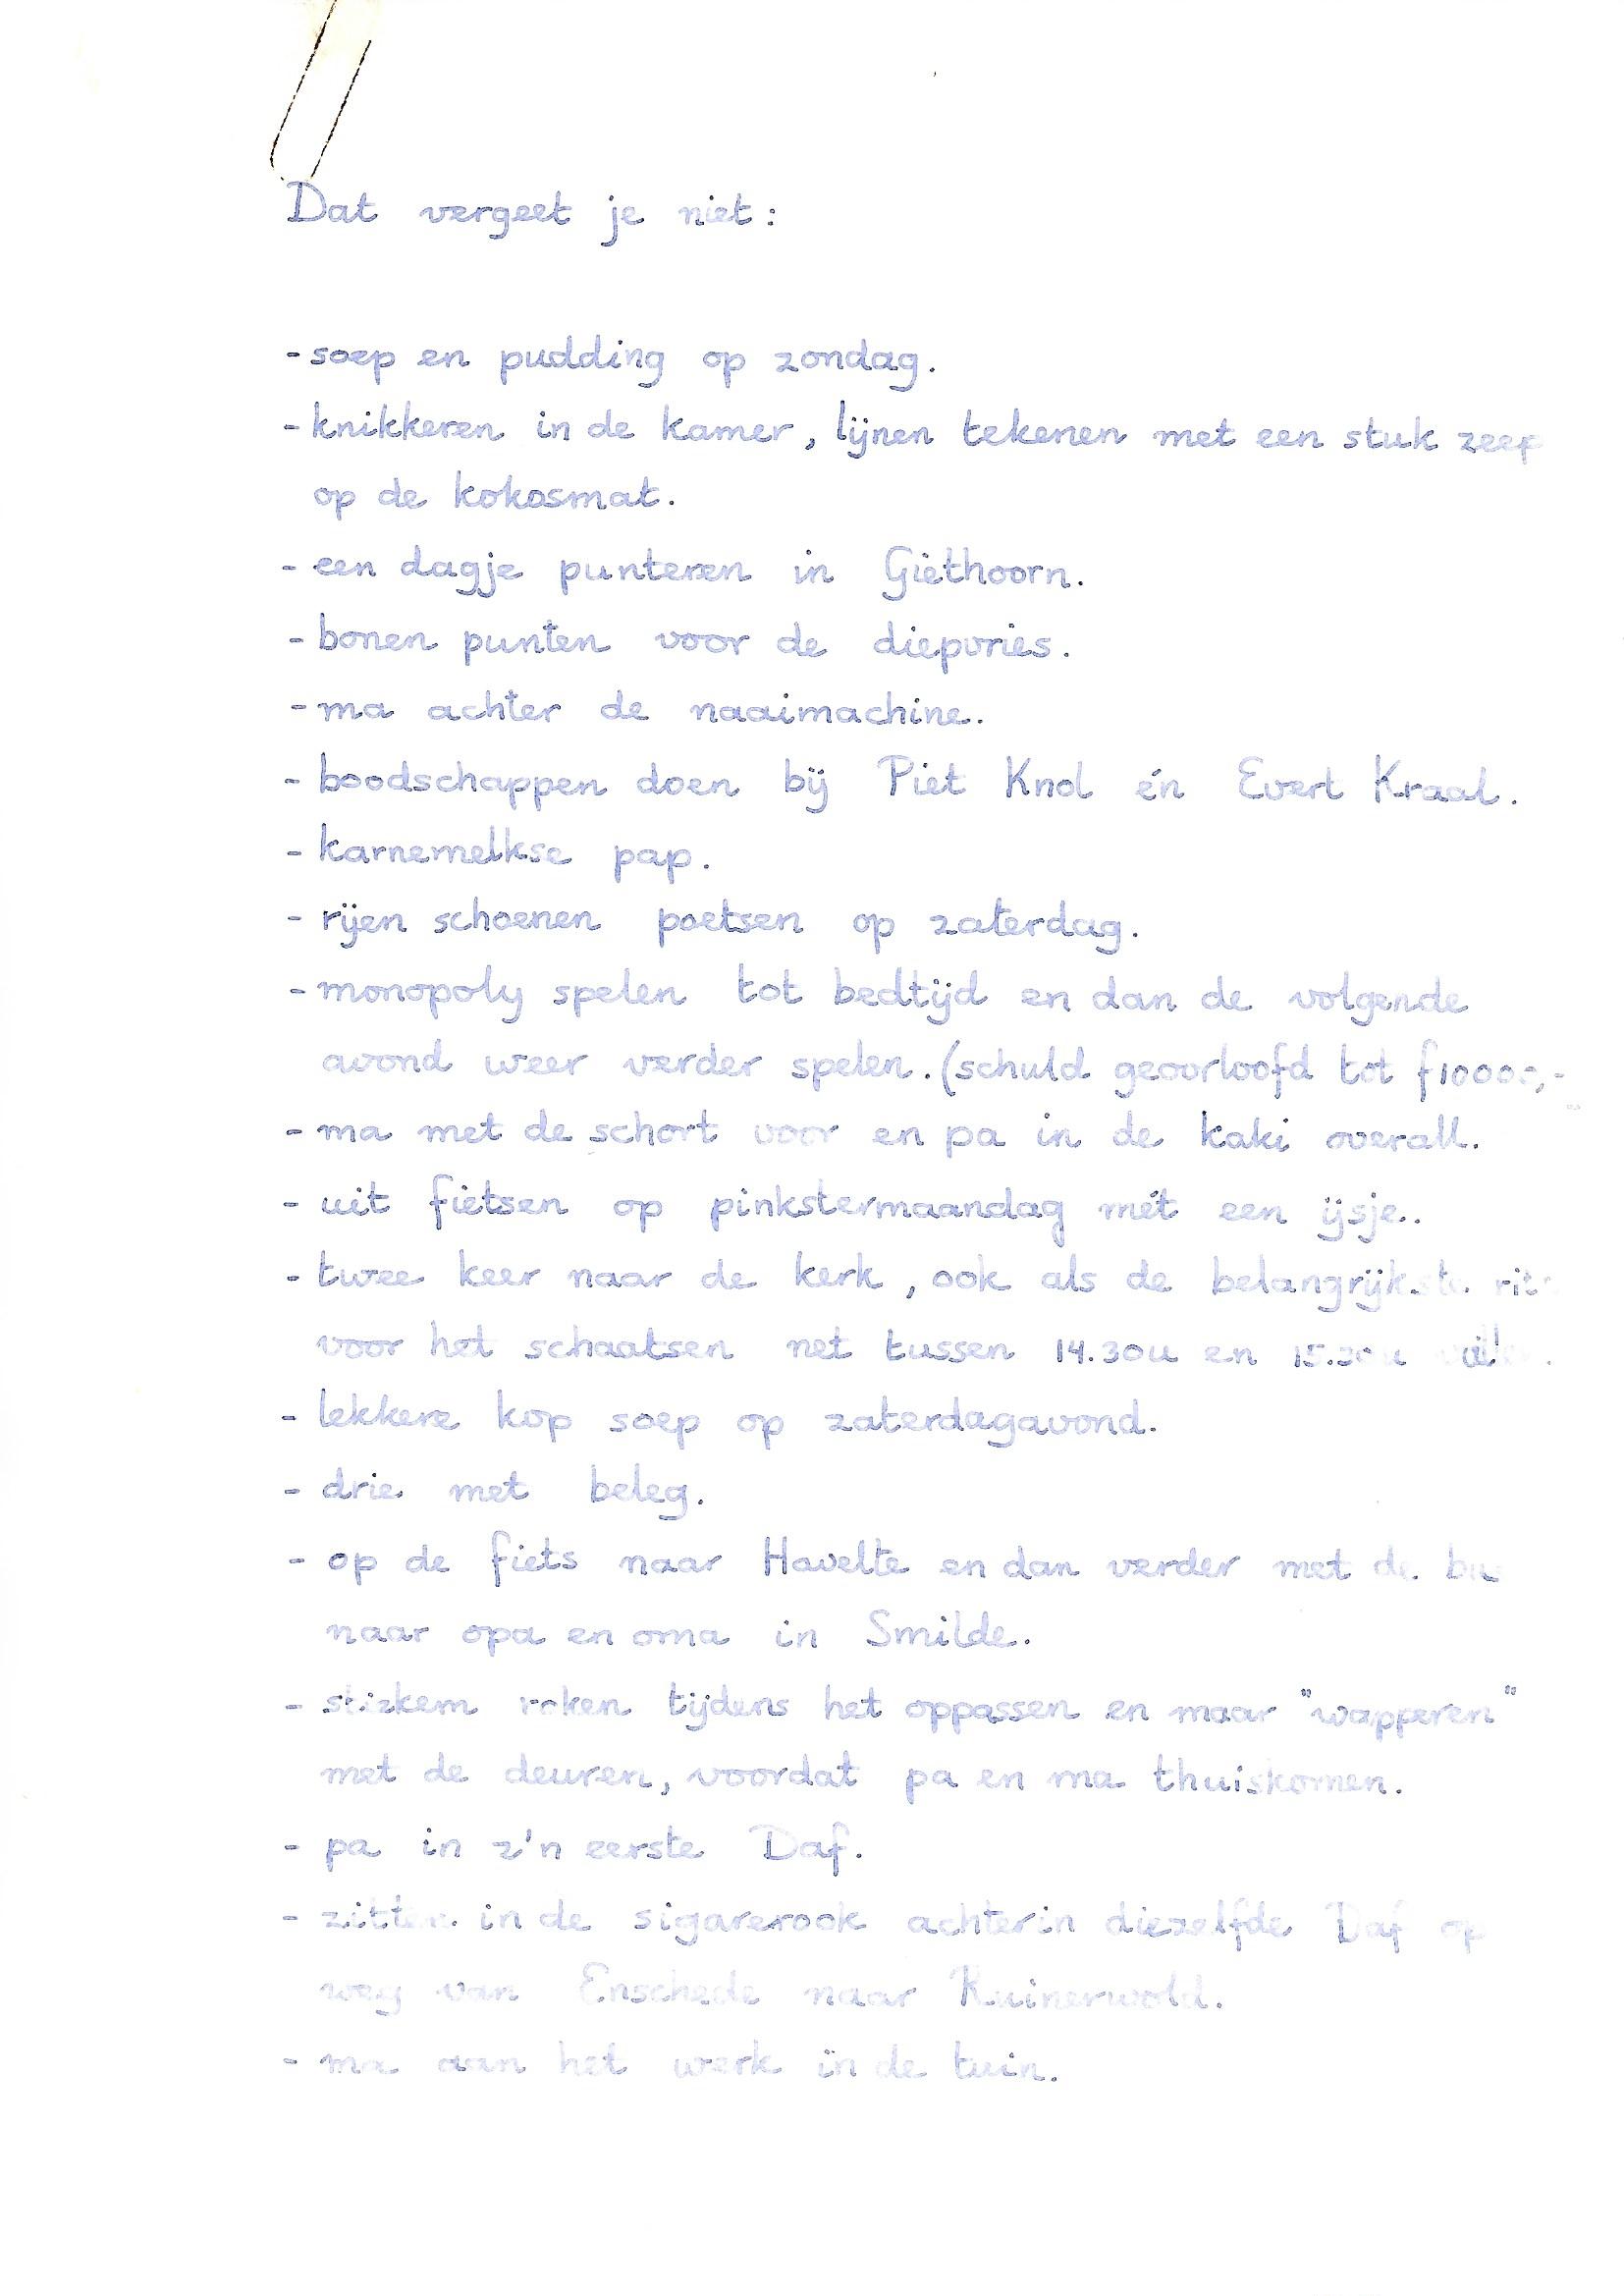 Dat vergeet je niet:
- soep en pudding op zondag.
- knikkeren in de kamer, lijnen tekenen met een stuk zeep
op de kokosmat.
- een dagje punteren in Giethoorn.
- bonen punten voor de diepvries.
- ma achter de naaimachine.
- boodschappen doen bij Piet Knol én Evert Kraal.
- karnemelkse pap.
- rijen schoenen poetsen op zaterdag.
- monopoly spelen tot bedtijd en dan de volgende
avond weer verder spelen. (schuld geoorloofd tot f10000,-
- ma met de schort voor en pa in de kaki overall.
- uit fietsen op pinkstermaandag mét een ijsje.
- twee keer naar de kerk, ook als de belangrijkste
voor het schaatsen net tussen 14.30u en 15.30u
- lekkere kop soep op zaterdagavond.
- drie met beleg.
- op de fiets naar Havelte en dan verder met de bus
naar opa en oma in Smilde.
- stiekem roken tijdens het oppassen en maar "wapperen"
met de deuren, voordat pa en ma thuiskomen.
- pa in z'n eerste Daf.
- zitten in de sigarerook achterin diezelfde Daf op
weg van Enschede naar Ruinerwold.
- ma aan het werk in de tuin.